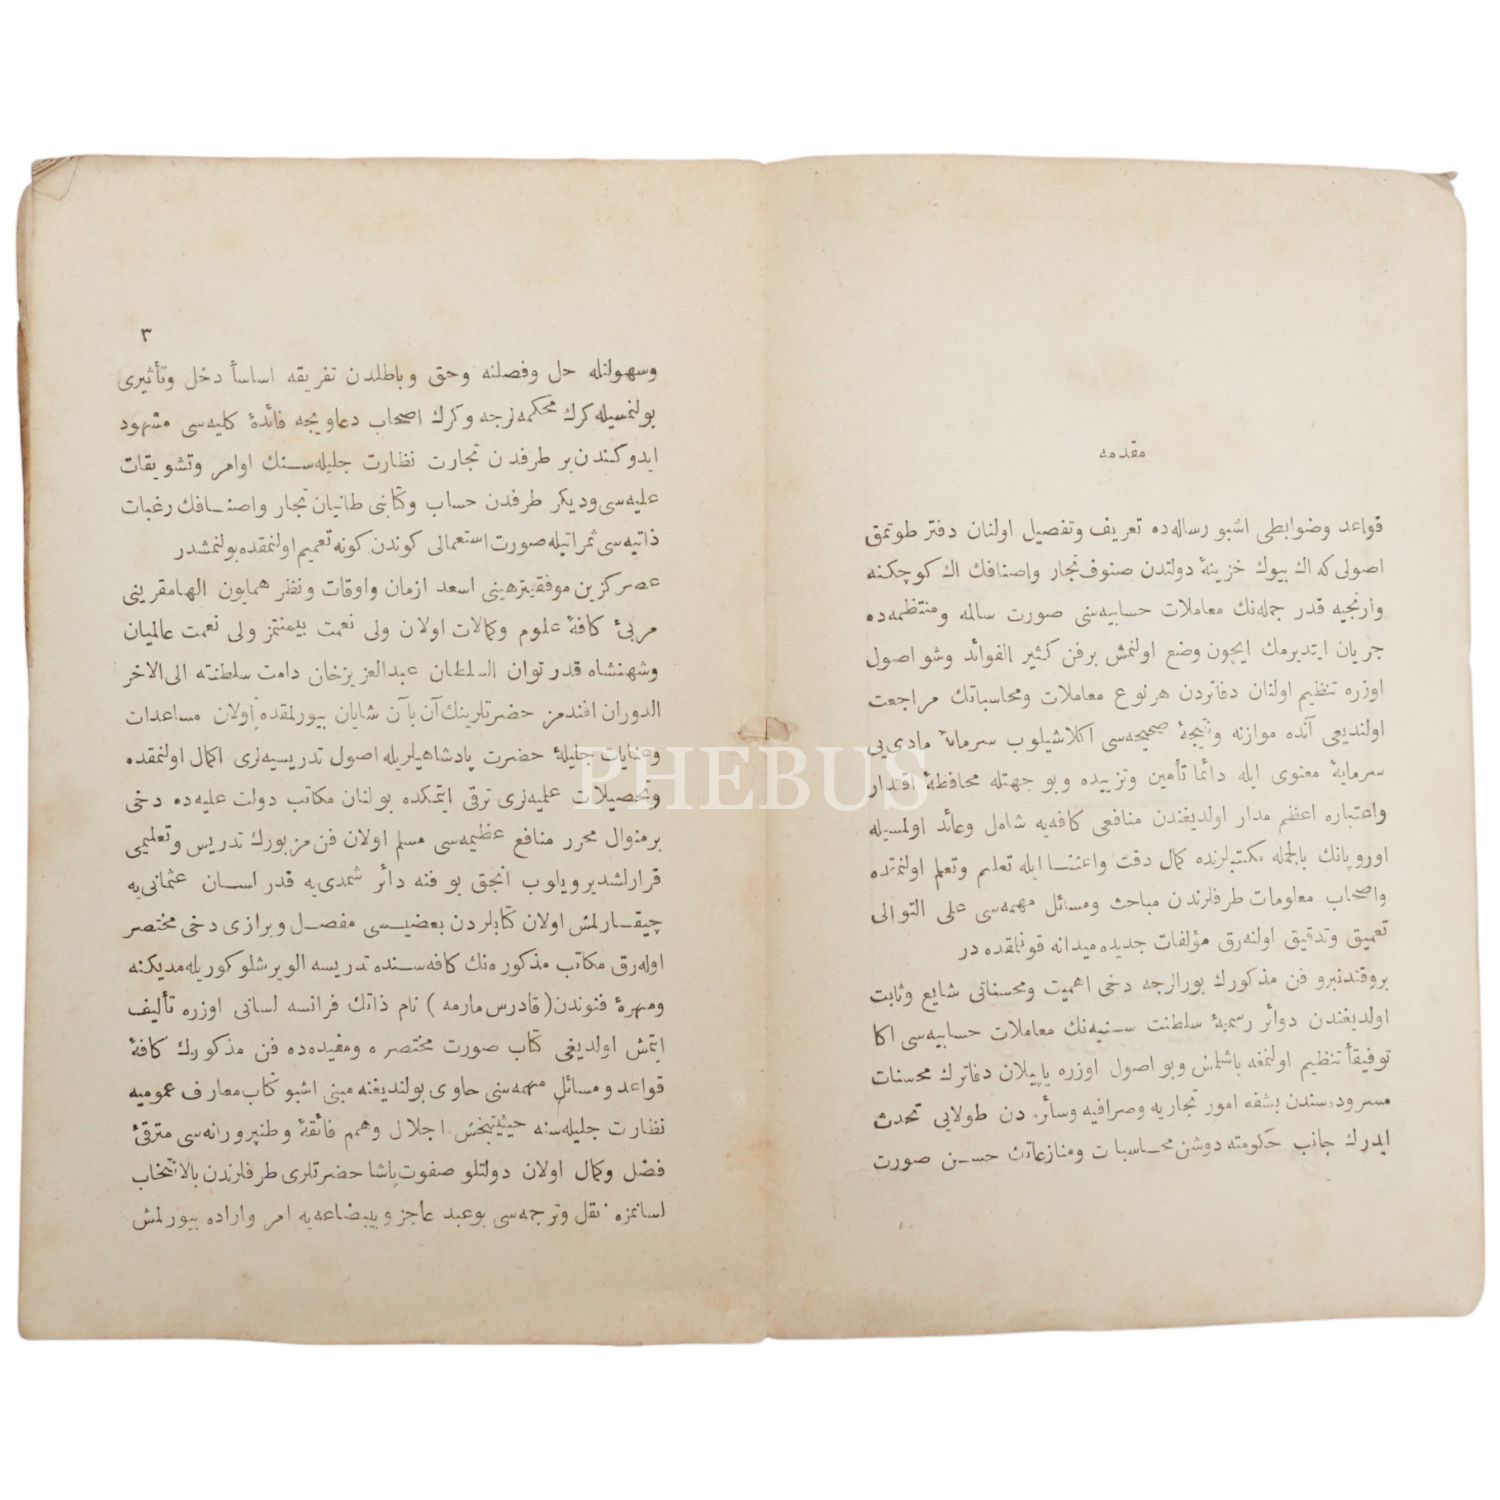 مقدمه
قواعد وضوابطی اشبو رساله‌ده تعریف وتفصیل اولنان دفتر طوتمق
اصولی که اك بیوك خزینهٔ دولتدن صنوف تجار واصنافك اك كوچكنه
وارنجیه قدر جمله‌نك معاملات حسابیه‌سنی صورت سالمه ومنتظمه‌ده
جریان ایتدیرمك ایچون وضع اولنمش برفن كثیر الفوائد وشو اصول
اوزره تنظیم اولنان دفاتردن هرنوع معاملات ومحاسباتك مراجعت
اولندیغی آنده موازنه ونتیجهٔ صحیحه‌سی اكلاشیلوب سرمایهٔ مادی‌یی
سرمایهٔ معنوی ایله دائما تأمین وتزییده وبو جهتله محافظهٔ اقتدار
واعتباره اعظم مدار اولدیغندن منافعی كافه‌یه شامل وعائد اولمسیله
اوروپانك بالجمله مكتبلرنده كمال دقت واعتنا ایله تعلیم وتعلم اولنمقده
واصحاب معلومات طرفلرندن مباحث ومسائل مهمه‌سی علی التوالی
تعمیق وتدقیق اولنه‌رق مؤلفات جدیده میدانه قونلمقده در
بروقتدنبرو فن مذكورك بورالرجه دخی اهمیت ومحسناتی شایع وثابت
اولدیغندن دوائر رسمیهٔ سلطنت سنیه‌نك معاملات حسابیه‌سی اكا
توفیقاً تنظیم اولنمغه باشلمش وبو اصول اوزره یاپیلان دفاترك محسنات
مسروده‌سندن بشقه امور تجاریه وصرافیه وسائره دن طولایی تحدث
ایدرك جانب حكومته دوشن محاسبات ومنازعاتك حسن صورت
٣
وسهولتله حل وفصلنه وحق وباطلدن تفریقه اساساً دخل وتأثیری
بولنمسیله كرك محكمه‌لرجه وكرك اصحاب دعاویجه فائدهٔ كلیه‌سی مشهود
ایدوكندن بر طرفدن تجارت نظارت جلیله‌سنك اوامر وتشویقات
علیه‌سی ودیكر طرفدن حساب وكتابنی طانیان تجار واصنافك رغبات
ذاتیه‌سی ثمراتیله صورت استعمالی كوندن كونه تعمیم اولنمقده بولنمشدر
عصر كزین موفقیترهینی اسعد ازمان واوقات ونظر همایون الهامقرینی
مربئ كافهٔ علوم وكمالات اولان ولی نعمت بیمنتمز ولی نعمت عالمیان
وشهنشاه قدر توان السلطان عبدالعزیزخان دامت سلطنته الی الاخر
الدوران افندمز حضرتلرینك آن بآن شایان بیورلمقده اولان مساعدات
وعنایات جلیلهٔ حضرت پادشاهیلریله اصول تدریسیه‌لری اكمال اولنمقده
وتحصیلات علمیه‌لری ترقی ایتمكده بولنان مكاتب دولت علیه‌ده دخی
برمنوال محرر منافع عظیمه‌سی مسلم اولان فن مزبورك تدریس وتعلیمی
قرارلشدیرویلوب انجق بو فنه دائر شمدی‌یه قدر لسان عثمانی‌یه
چیقارلمش اولان كتابلردن بعضیسی مفصل وبرازی دخی مختصر
اوله‌رق مكاتب مذكوره‌نك كافه‌سنده تدریسه الویرشلو كوریله‌مدیكنه
ومهرهٔ فنوندن (قادرس مارمه) نام ذاتك فرانسه لسانی اوزره تألیف
ایتمش اولدیغی كتاب صورت مختصره ومفیده‌ده فن مذكورك كافهٔ
قواعد ومسائل مهمه‌سنی حاوی بولندیغنه مبنی اشبو كتاب معارف عمومیه
نظارت جلیله‌سنه حیثیتبخش اجلال وهمم فائقهٔ وطنپرورانه‌سی مترقئ
فضل وكمال اولان دولتلو صفوت پاشا حضرتلری طرفلرندن بالانتخاب
لسانمزه نقل وترجمه‌سی بوعبد عاجز وبیبضاعه‌یه امر واراده بیورلمش
PHEBUS